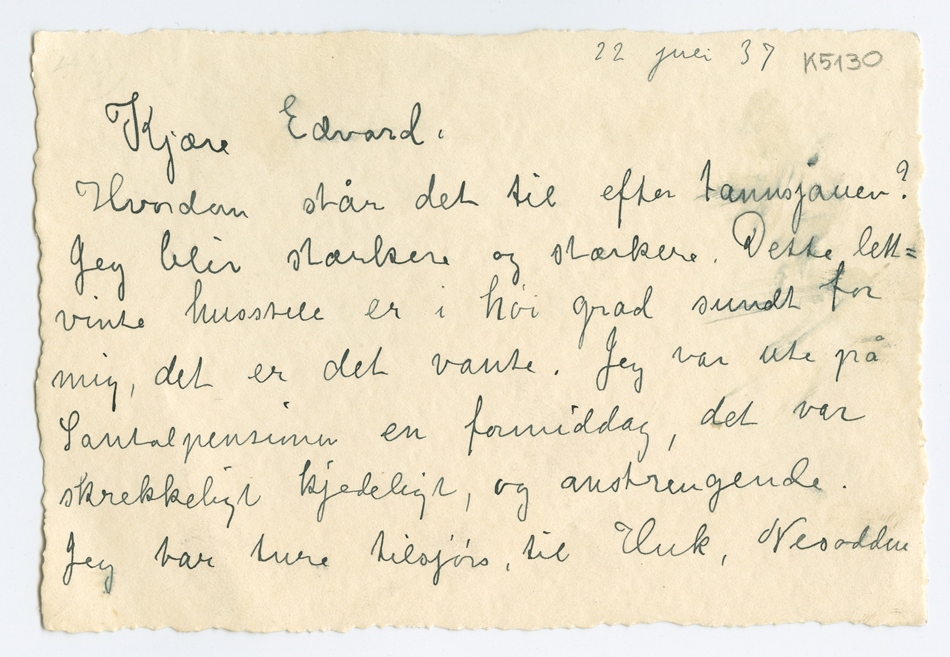 22 juli 37 K5130
Kjære Edvard.
Hvordan står det til efter tannsjauen?
Jeg blir stærkere og stærkere. Dette lett=
vinte husstell er i høi grad sundt for
mig, det er det vante. Jeg var ute på
Santalpensionen en formiddag, det var
skrekkeligt kjedeligt, og anstrengende.
Jeg tar ture tilsjøs, til Huk, Nesodden